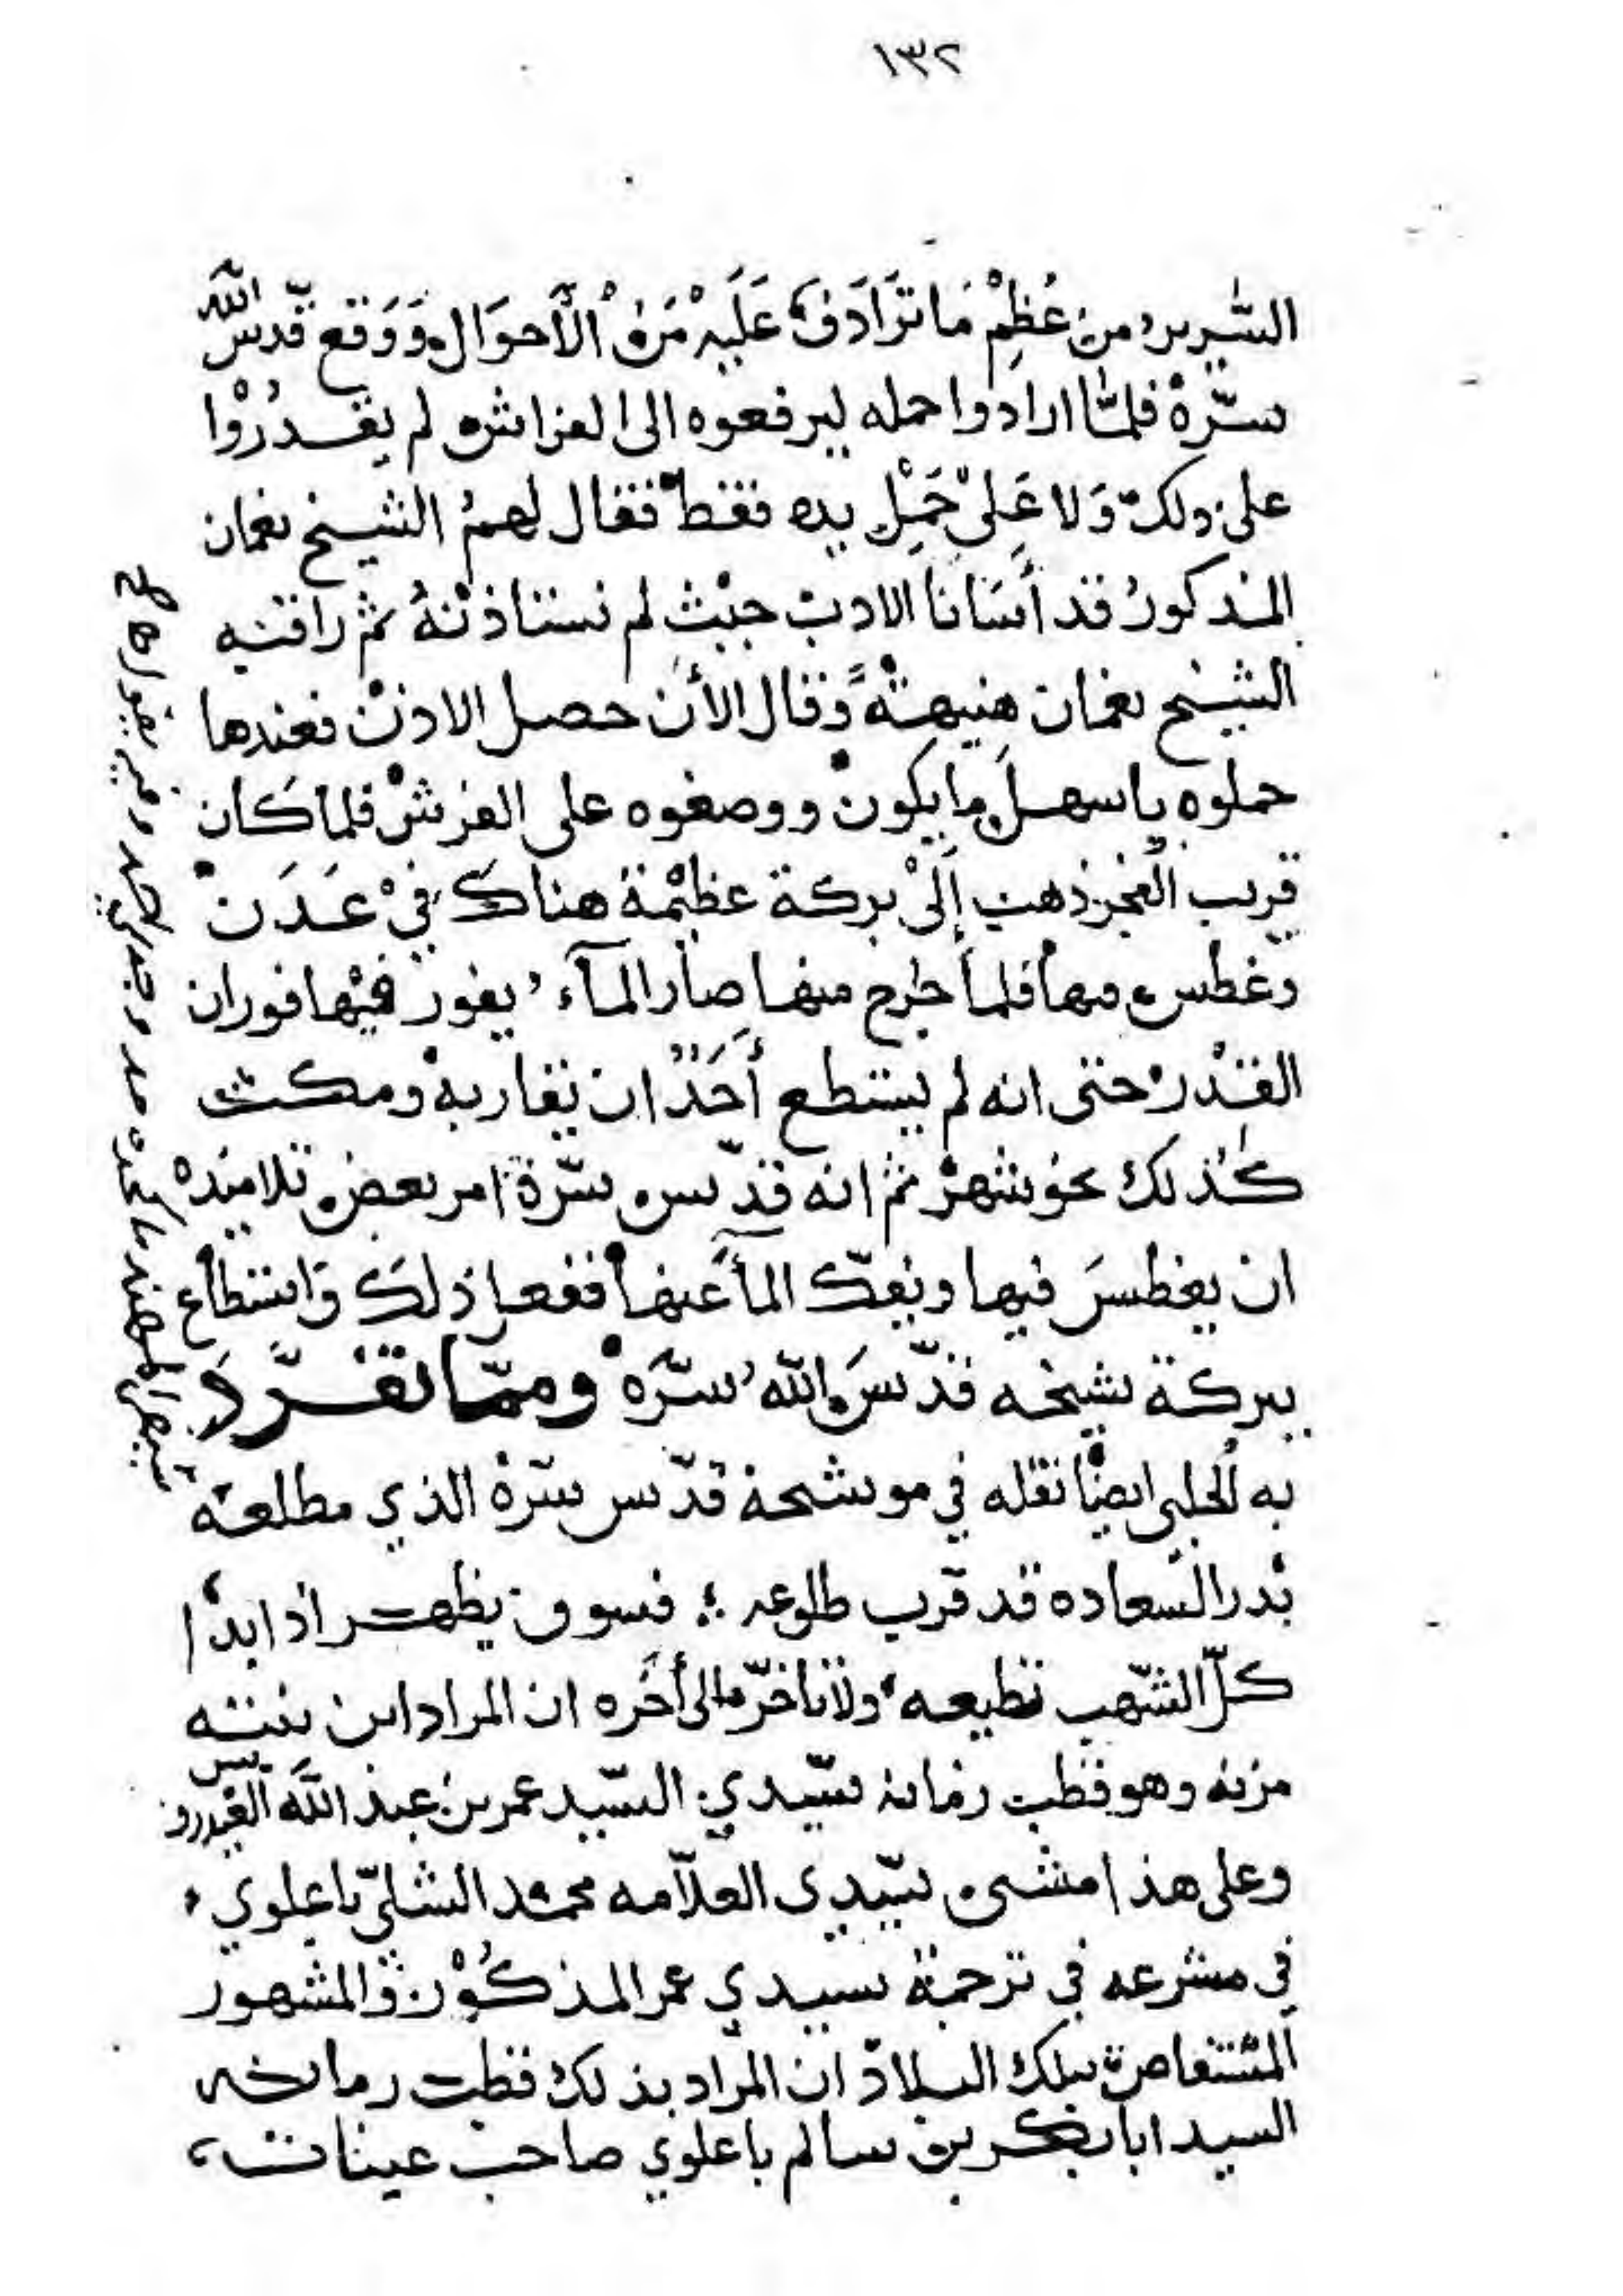 ١٣٢
السّرير من عُظِمْ مَا تَرَادَفَ عَلَيْهِ مَنْ الْأَحوَال وَوَقع قدّس الله
سرّهْ فلمّا ارادوا حمله ليرفعوه الى الفراش لم يقدرُوْا
على ذلك وَلا عَلىْ حَمْلِ يده فقط فقال لهمُ الشيخ نعمان
المذكورُ قد أنسَانا الادب حيْث لم نستاذنهُ ثمّ راقبه
الشيخ نعمان هنيهةً وقال الأن حصل الاذنْ فعندها
حملوه باسهل ما يكون ووضعوه على الفرشْ فلما كان
قريب الفجر ذهب إِلَىْ بركة عظيْمة هناك فيْ عَدَن
وغطس فيها فلما خرج منها صار المآء يفور فيْها فوران
القدْر حتى انه لم يستطع أَحَدٌ ان يقاربهْ ومكث
كذلك نحو شهر ثمّ انه قدّس سرّهْ امر بعض تلاميذه
ان يغطسَ فيها ويفكّ المأَ عنها ففعل ذلك وَاستطاع
ببركة شيخه قدّسَ الله سرّه وممّا تفرَّدَ
به الحلبى ايضًا نقله في موشحة قدّس سرّهْ الذي مطلعه
بَدر السّعاده قد قرب طلوعه ؛ فسوف يظهر اذا بدا
كلّ الشّهب تطيعه ولا تأخرّ ما الى أخره ان المراد ابن بنته
مزنه وهو قطب زمانه سيّدي السّيد عمر بن عبد اللّه العيدروس
وعلى هذا مشى سيّدى العلّامه محمّد الشلىّ باعلوي
في مشرعه في ترجمة سيدي عمر المذكُوْر والمشهور
المستفاض بتلك البلاد ان المراد بذلك قطب زمانه
السيد ابا بكر بن سالم باعلوي صاحب عينات